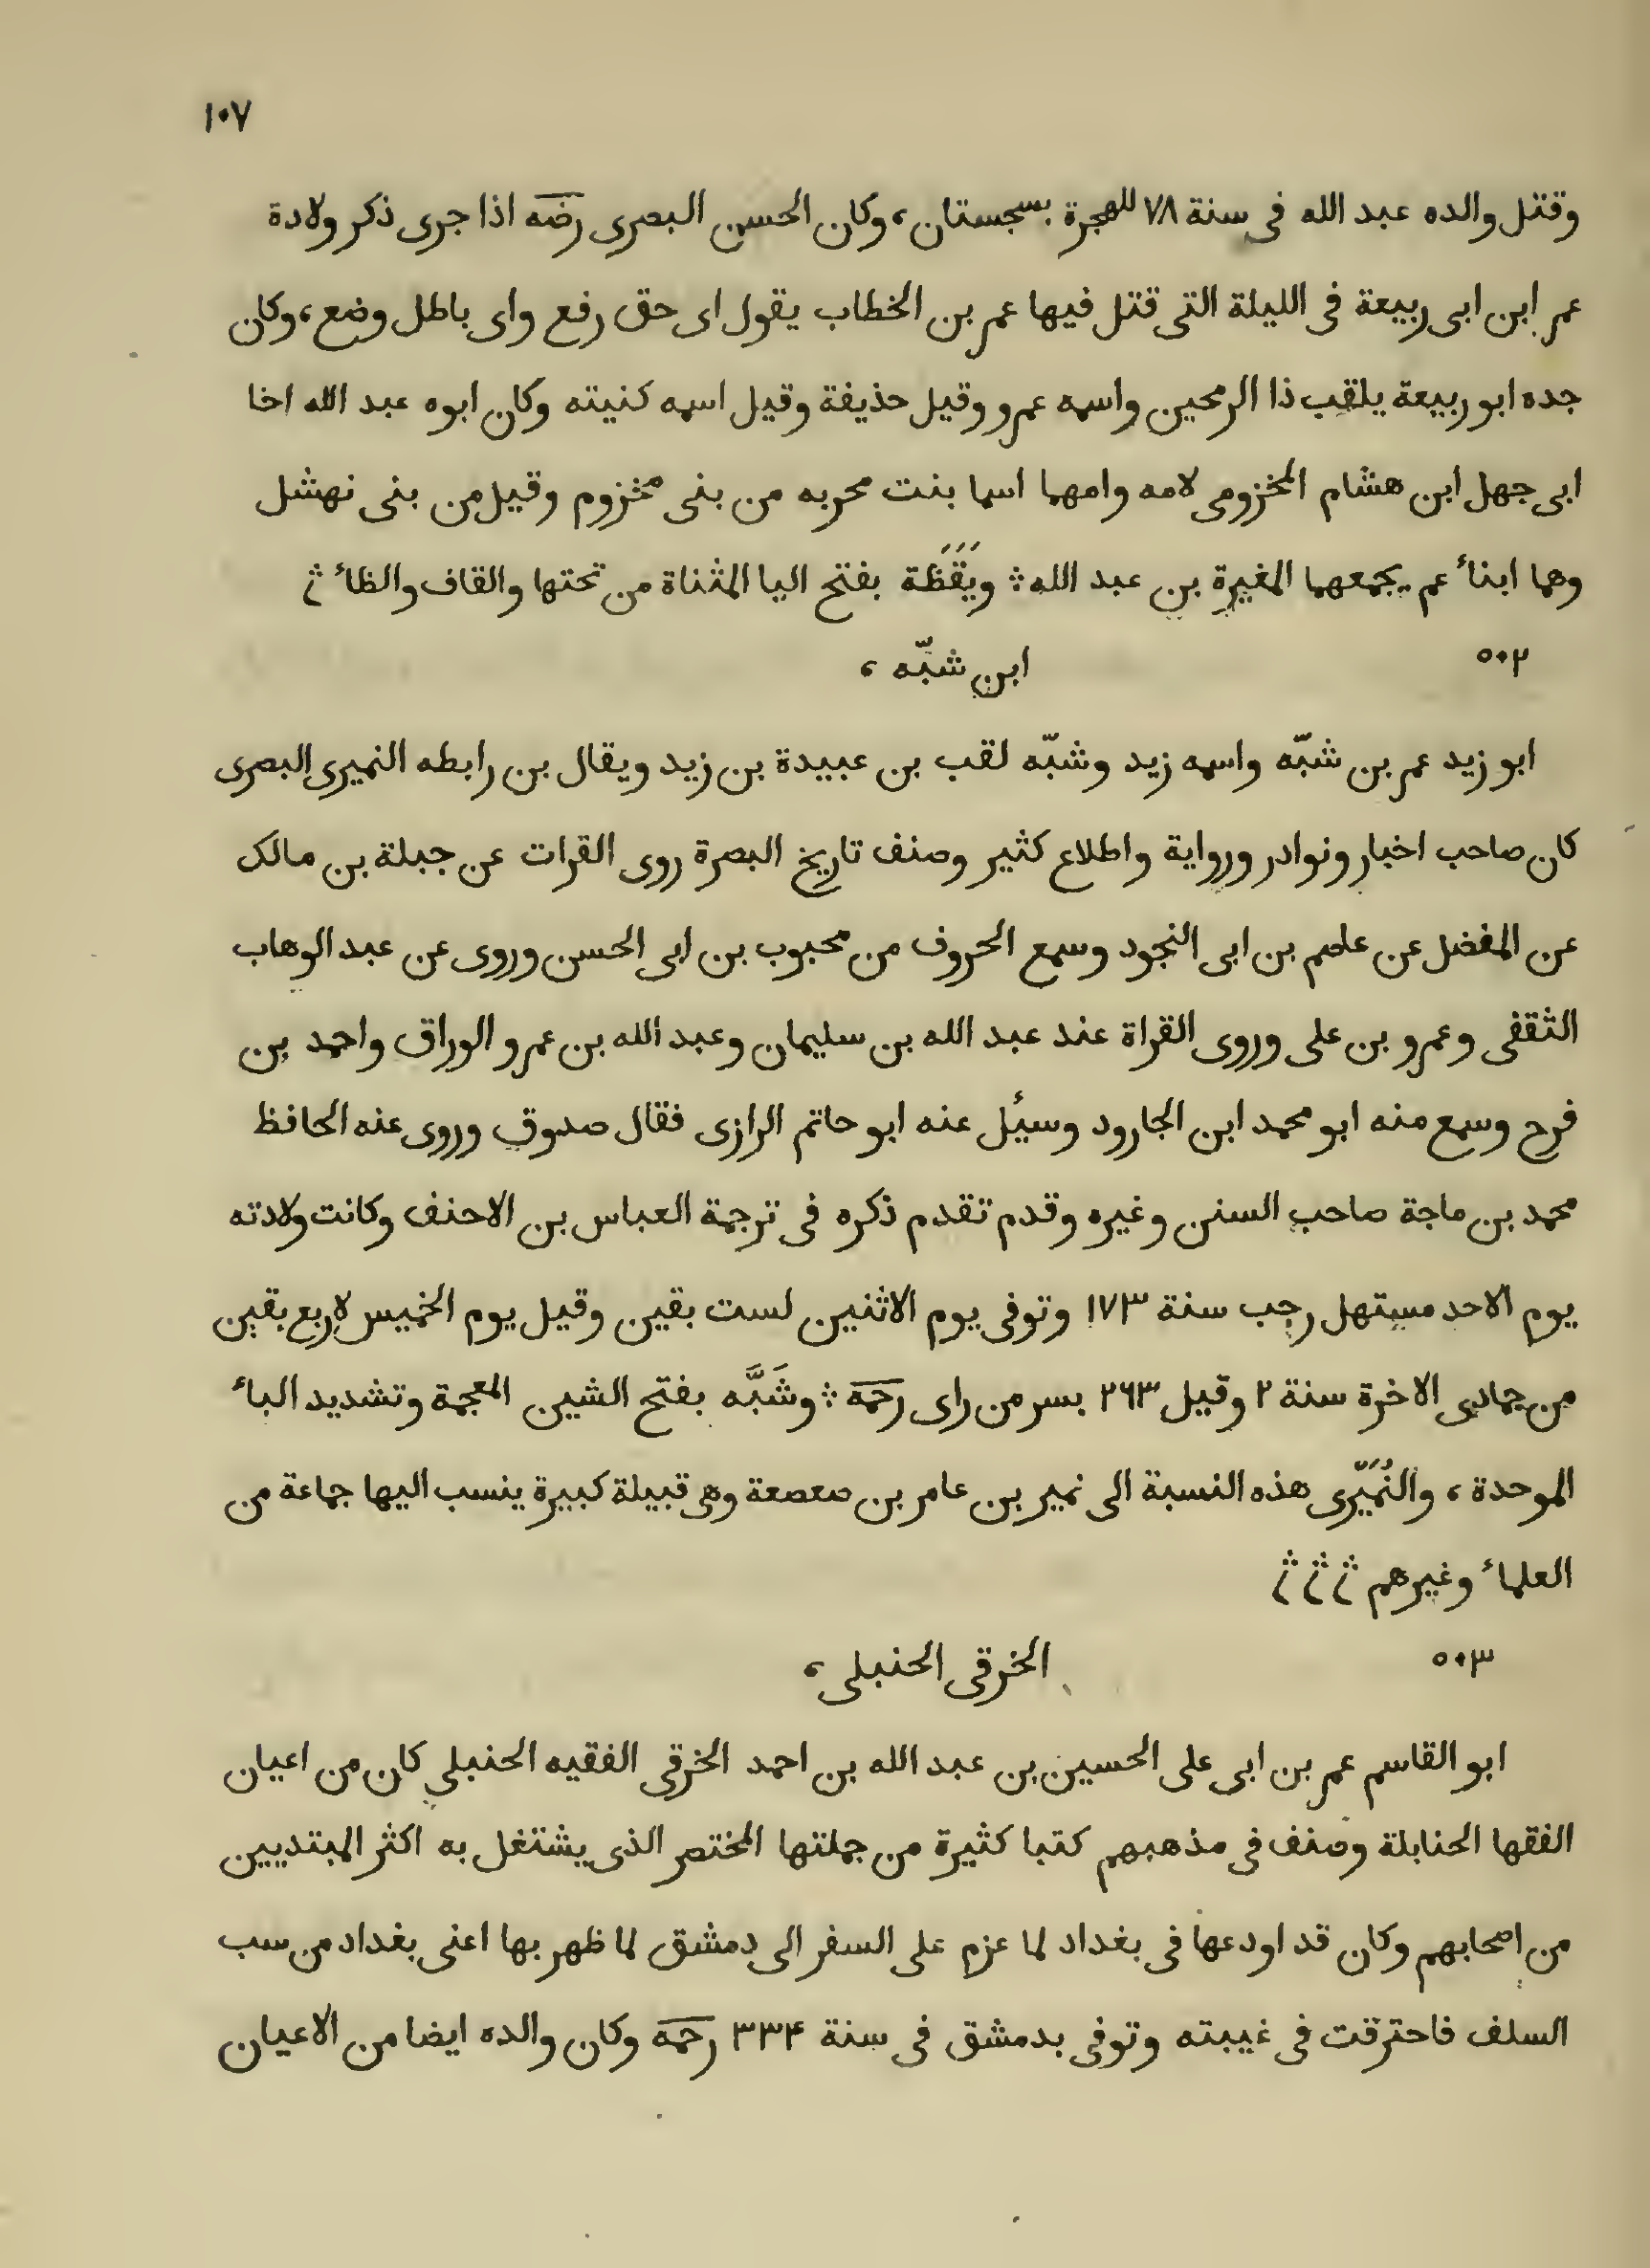 ١٠٧
وقتل والده عبد الله فى سنة ٧٨ للهجرة بسجستان، وكان الحسن البصرى رضه اذا جرى ذكر ولادة
عمر ابن ابى ربيعة فى الليلة التى قتل فيها عمر بن الخطاب يقول اى حق رفع واى باطل وضع، وكان
جده ابو ربيعة يلقب ذا الرمحين واسمه عمرو وقيل حذيفة وقيل اسمه كنيته وكان ابوه عبد الله اخا
ابى جهل ابن هشام المخزومى لامه وامهما اسما بنت محربه من بنى مخزوم وقيل من بنى نهشل
وهما ابناء عم يجمعهما المغيرة بن عبد الله ؛ ويَقَظَة بفتح اليا المثناة من تحتها والقاف والظاء ؞
٥٠٢
ابن شبّه ،
ابو زيد عمر بن شبّه واسمه زيد وشبّه لقب بن عبيدة بن زيد ويقال بن رابطه النميرى البصرى
كان صاحب اخبار ونوادر ورواية واطلاع كثير وصنف تاريخ البصرة روى القرات عن جبلة بن مالك
عن المفضل عن عاصم بن ابى النجود وسمع الحروف من محبوب بن ابى الحسن وروى عن عبد الوهاب
الثقفى وعمرو بن على وروى القراة عند عبد الله بن سليمان وعبد الله بن عمرو الوراق واحمد بن
فرح وسمع منه ابو محمد ابن الجارود وسيُل عنه ابو حاتم الرازى فقال صدوق وروى عنه الحافظ
محمد بن ماجة صاحب السنن وغيره وقدم تقدم ذكره فى ترجمة العباس بن الاحنف وكانت ولادته
يوم الاحد مستهل رجب سنة ١٧٣ وتوفى يوم الاثنين لست بقين وقيل يوم الخميس لاربع بقين
من جمادى الاخرة سنة ٢ وقيل ٢٦٣ بسر من راى رحمه ؛ وشَبَّه بفتح الشين المعجمة وتشديد الباء
الموحدة ، والنُمَيّرى هذه النسبة الى نمير بن عامر بن صعصعة وهى قبيلة كبيرة ينسب اليها جماعة من
العلماء وغيرهم ؞ ؞ ؞
٥٠٣
الخرقى الحنبلى ،
ابو القاسم عمر بن ابى على الحسين بن عبد الله بن احمد الخرقى الفقيه الحنبلى كان من اعيان
الفقها الحنابلة وصنف فى مذهبهم كتبا كثيرة من جملتها المختصر الذى يشتغل به اكثر المبتديين
من اصحابهم وكان قد اودعها فى بغداد لما عزم على السفر الى دمشق لما ظهر بها اعنى بغداد من سب
السلف فاحترقت فى غيبته وتوفى بدمشق فى سنة ٣٣٤ رحمه وكان والده ايضا من الاعيان